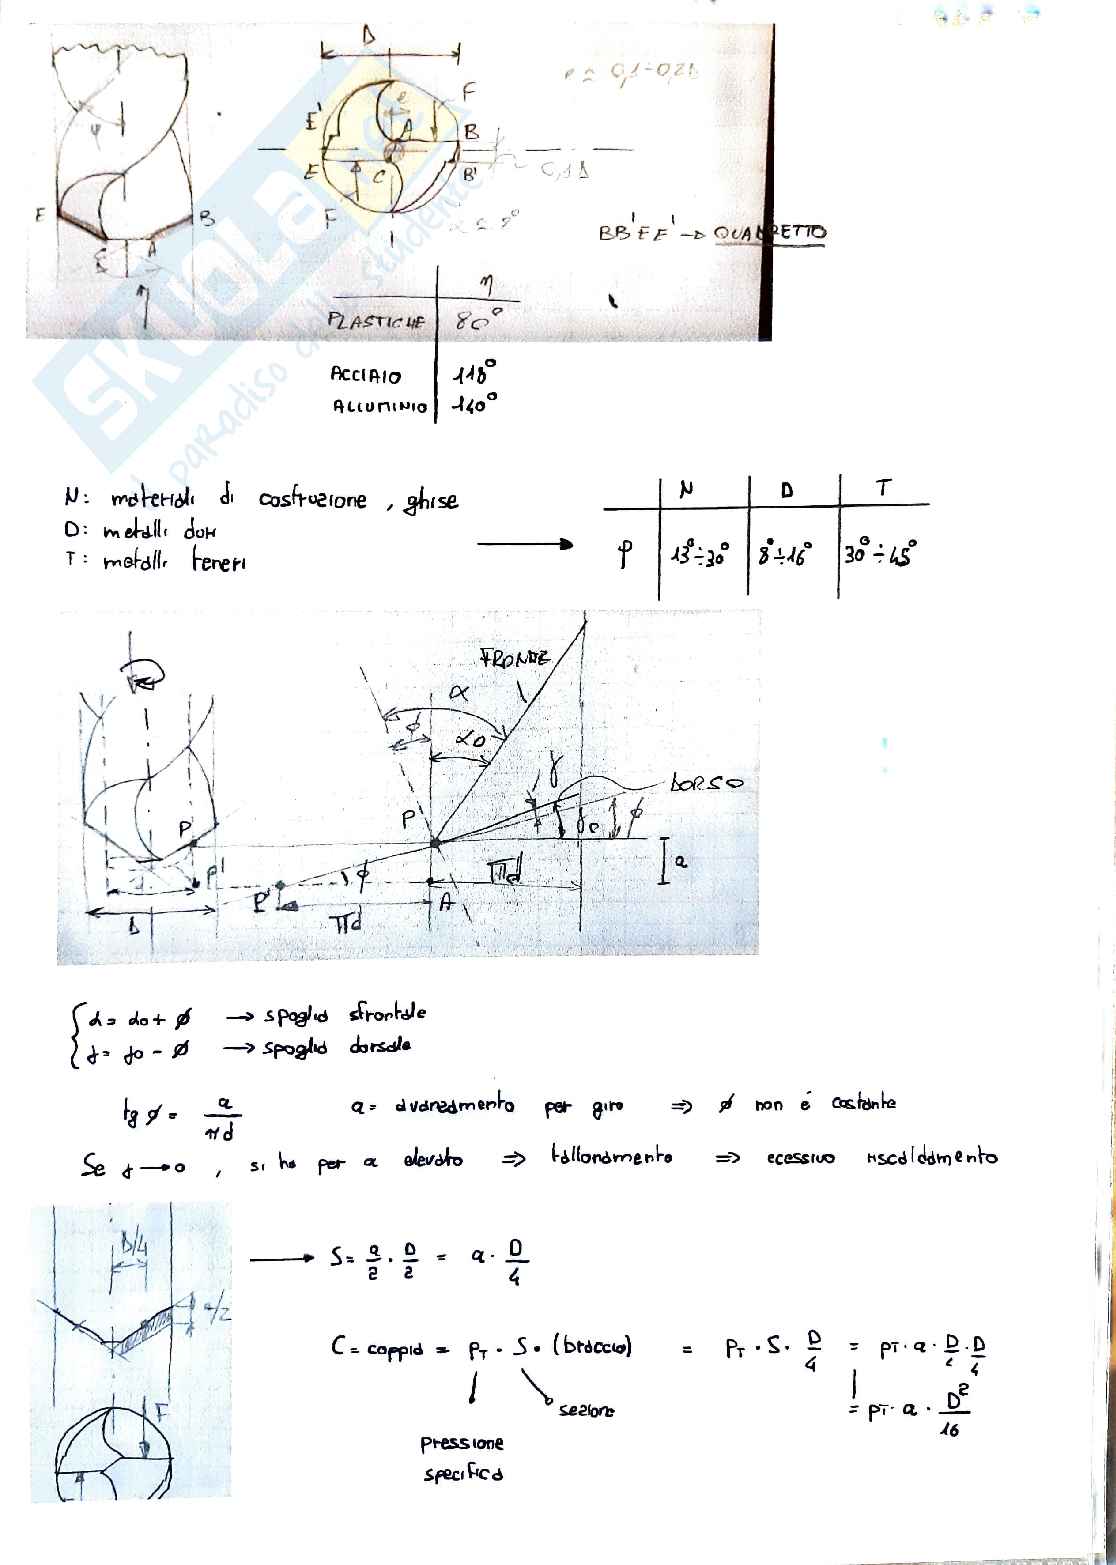 D
e ≃ 0,1-0,2D
e
F
E'
A
B
φ
E
C
B'
0,1D
E
B
F
C
A
BB'EE' → QUADRETTO
η
η
PLASTICHE 80°
ACCIAIO 118°
ALLUMINIO 140°
SKUOLA.net
il paradiso dello studente
N: materiali di costruzione, ghise
D: metalli duri
T: metalli teneri
N D T
φ 13°÷30° 8°÷16° 30°÷45°
FRONTE
α
ϕ
α0
γ
DORSO
P
P
γ0
ϕ
P'
ϕ
πd
a
d
P'
A
D
πd
α = α0 + ϕ → spoglia frontale
γ = γ0 - ϕ → spoglia dorsale
tg ϕ = a / πd a = avanzamento per giro ⇒ ϕ non é costante
Se γ → 0, si ha per a elevato ⇒ tallonamento ⇒ ecessivo riscaldamento
D/4
S = a/2 · D/2 = a · D/4
a/2
C = coppia = pT · S · (braccio) = pT · S · D/4 = pT · a · D/4 · D/4
= pT · a · D²/16
F
sezione
pressione
specifica